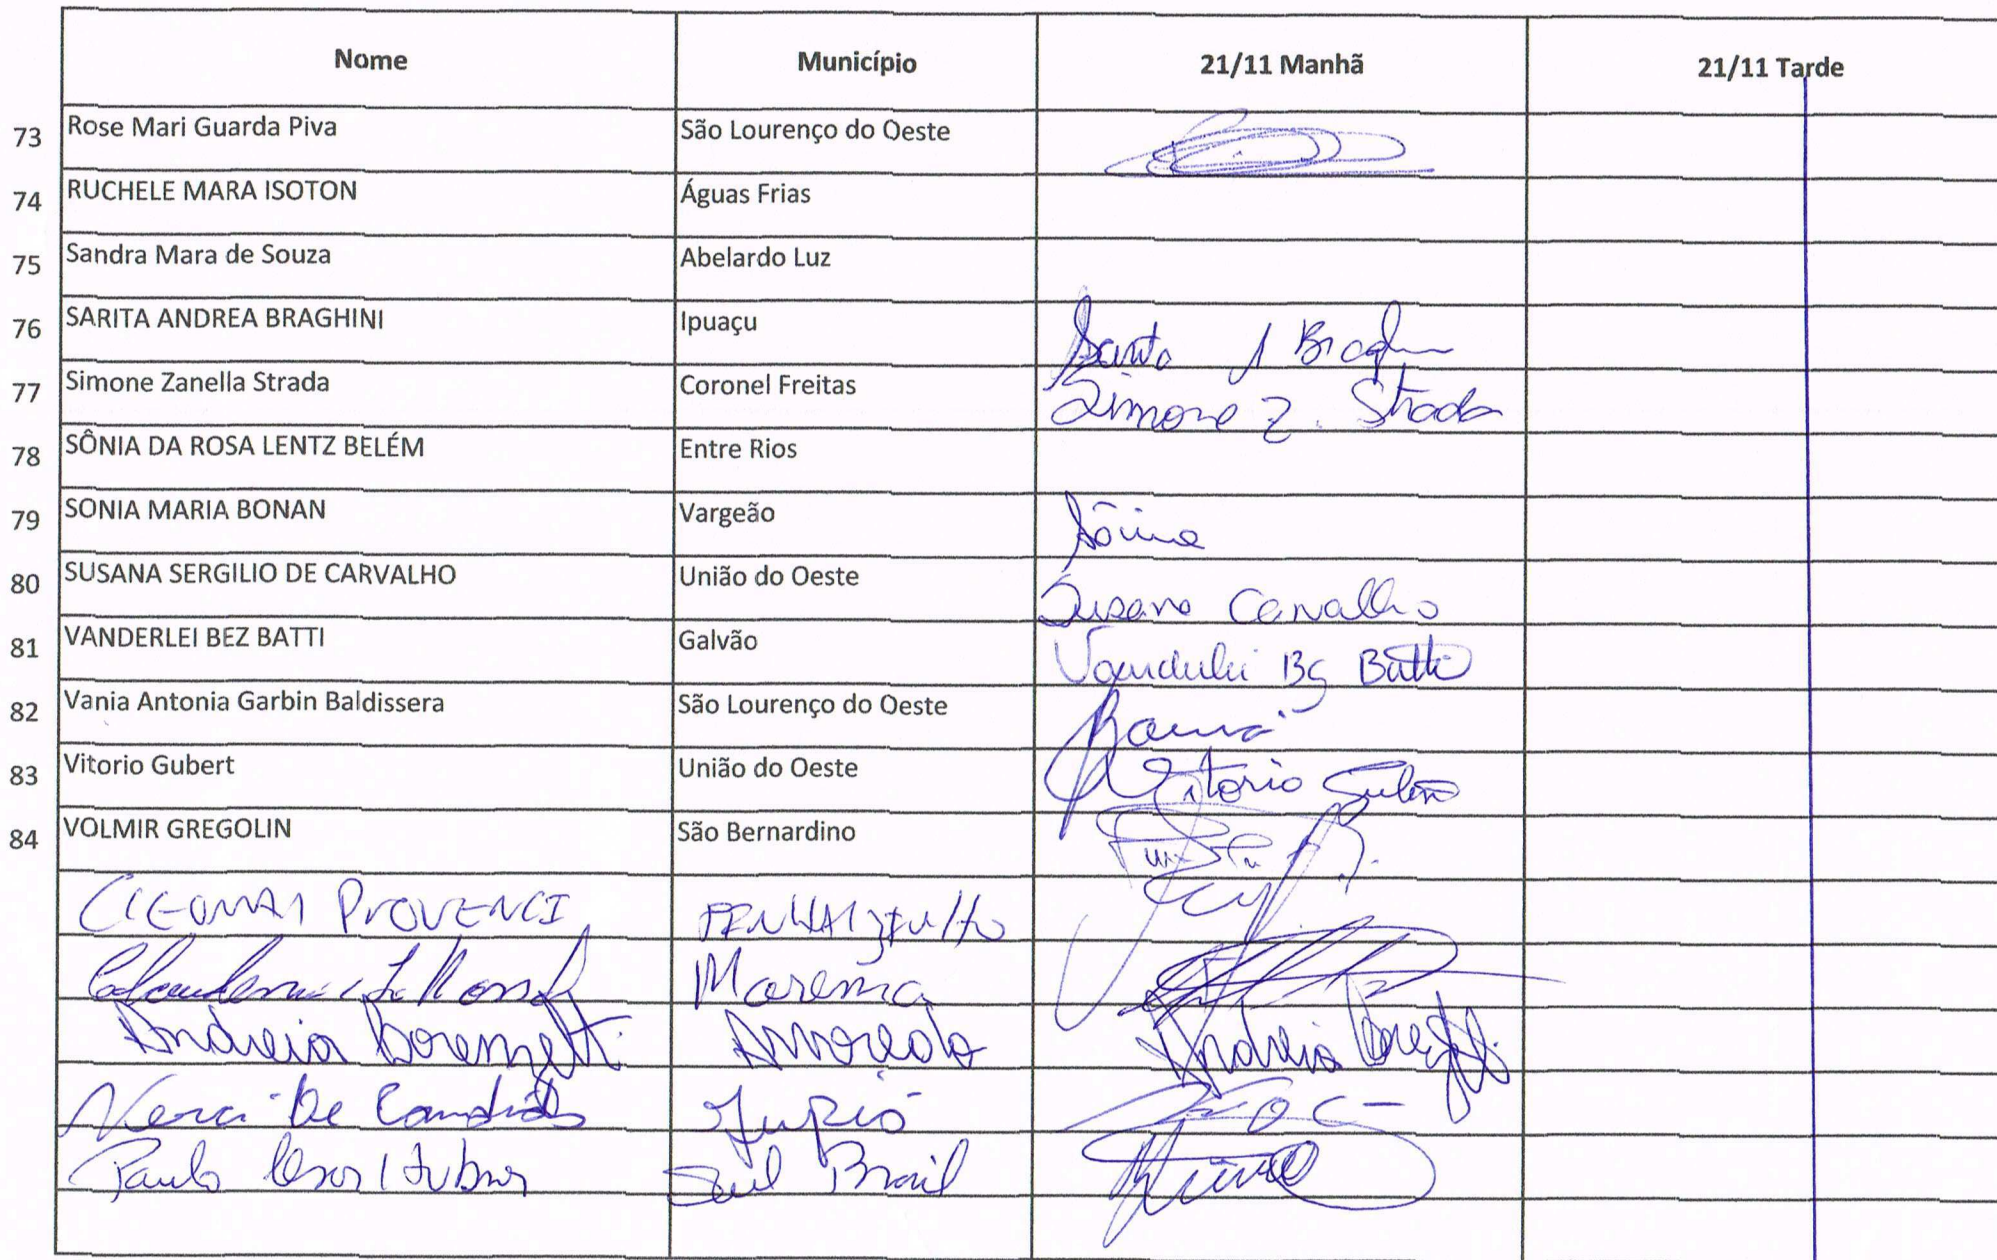 Nome Município 21/11 Manhã 21/11 Tarde
73 Rose Mari Guarda Piva São Lourenço do Oeste
74 RUCHELE MARA ISOTON Águas Frias
75 Sandra Mara de Souza Abelardo Luz
76 SARITA ANDREA BRAGHINI Ipuaçu
77 Simone Zanella Strada Coronel Freitas Simone Z. Strada
78 SÔNIA DA ROSA LENTZ BELÉM Entre Rios
79 SONIA MARIA BONAN Vargeão Sônia
80 SUSANA SERGILIO DE CARVALHO União do Oeste Susana Carvalho
81 VANDERLEI BEZ BATTI Galvão Vanderlei Bez Batti
82 Vania Antonia Garbin Baldissera São Lourenço do Oeste
83 Vitorio Gubert União do Oeste Vitorio
84 VOLMIR GREGOLIN São Bernardino
PROVENCI
Marema
Andreia Lorenzetti Arvoredo Andreia
Neraci De Jupiá
Paulo Cesar Sul Brasil